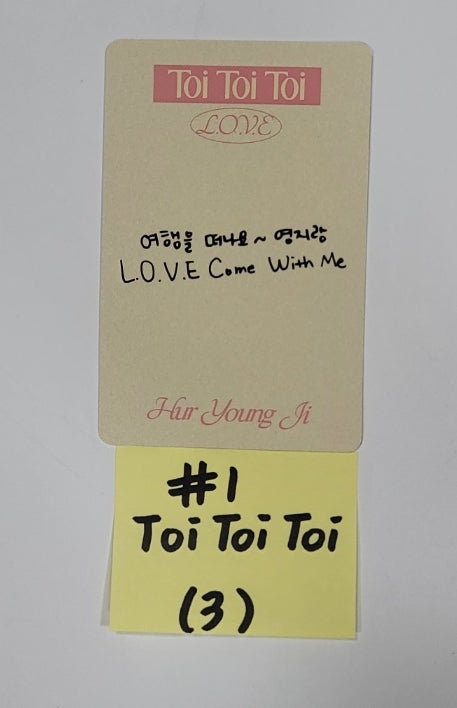 Toi Toi Toi
L.O.V.E
여행을 떠나요~ 영지랑
L.O.V.E Come With Me
Hur Young Ji
#1
Toi Toi Toi
(3)